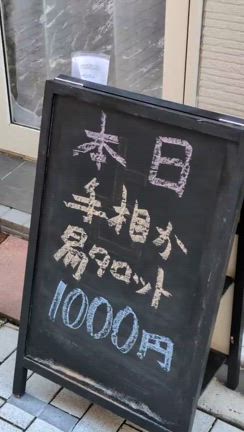 本日
手相か
易タロット
1000円